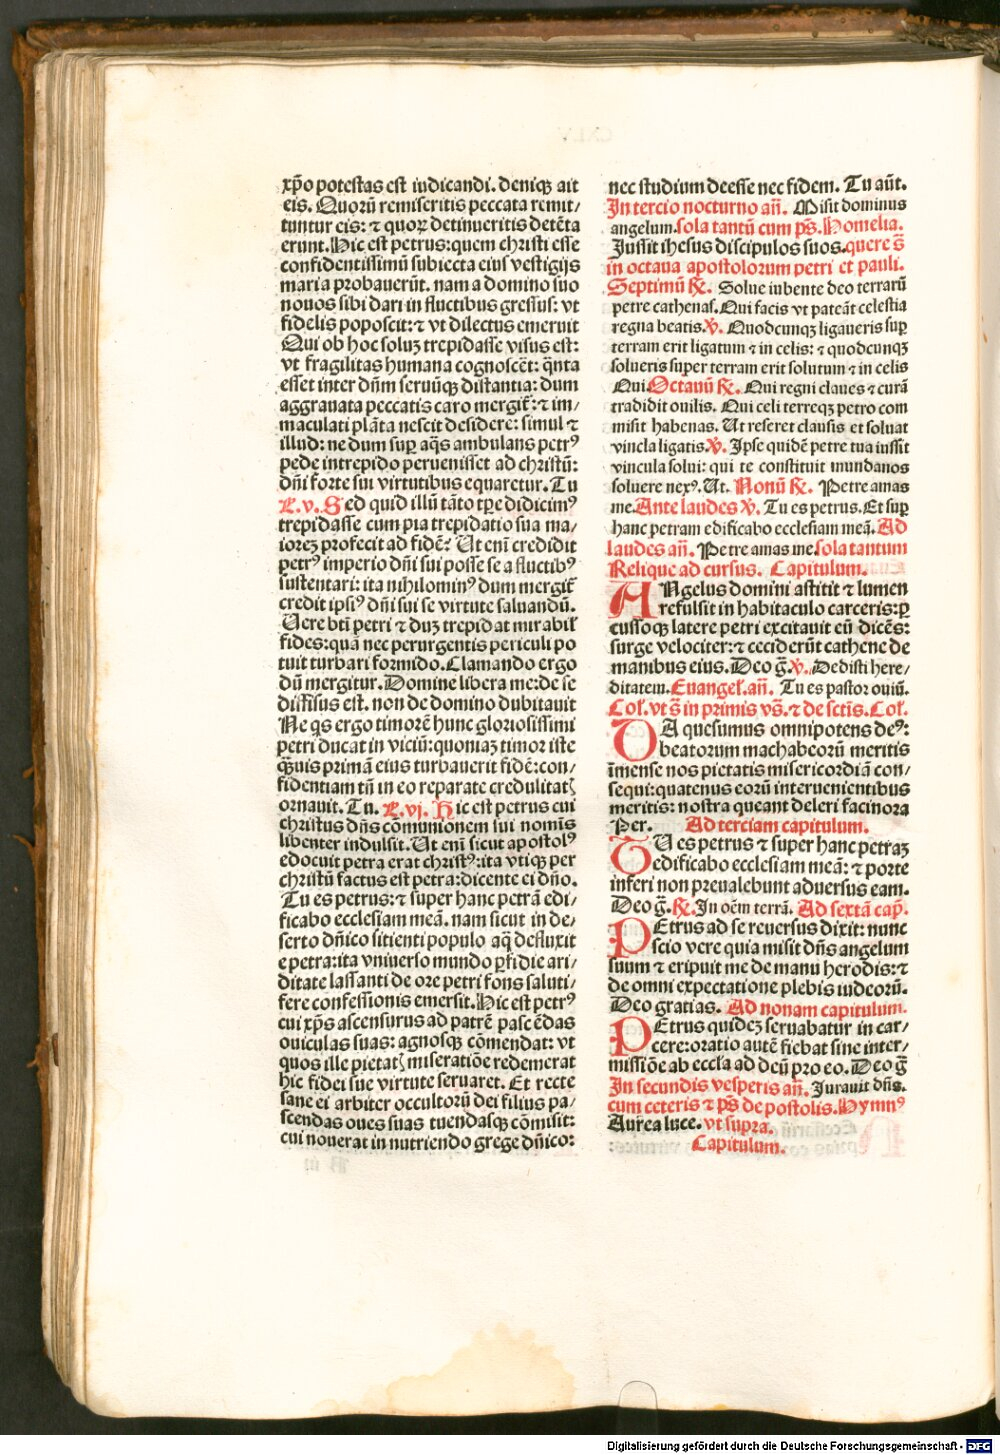 xp̄o potestas est iudicandi. deniqꝫ ait
eis. Quorū remiseritis peccata remit/
tuntur eis: ⁊ quoꝝ detinueritis detēta
erunt. Hic est petrus: quem christi esse
confidentissimū subiecta eius vestigijs
maria probauerūt. nam a domino suo
nouos sibi dari in fluctibus gressus: vt
fidelis poposcit: ⁊ vt dilectus emeruit
Qui ob hoc soluꝫ trepidasse visus est:
vt fragilitas humana cognoscēt: q̄nta
esset inter dn̄m seruūqꝫ distantia: dum
aggrauata peccatis caro mergit̄: ⁊ im/
maculati plāta nescit desidere: simul ⁊
illud: ne dum suꝑ aq̄s ambulans petrꝰ
pede intrepido peruenisset ad christū:
dn̄i forte sui virtutibus equaretur. Tu
L. v. Sed quid illū tāto tp̄e didicimꝰ
trepidasse cum pia trepidatio sua ma/
ioreꝫ profecit ad fidē? Ut enī credidit
petrꝰ imperio dn̄i sui posse se a fluctibꝰ
sustentari: ita nihilominꝰ dum mergit̄
credit ipsiꝰ dn̄i sui se virtute saluandū.
Uere bt̄i petri ⁊ duꝫ trepidat mirabil̄
fides: quā nec perurgentis periculi po
tuit turbari formido. Clamando ergo
dū mergitur. Domine libera me: de se
diffisus est. non de domino dubitauit
Ne q̄s ergo timorē hunc gloriosissimi
petri ducat in viciū: quoniaꝫ timor iste
q̄uis primā eius turbauerit fidē: con/
fidentiam tn̄ in eo reparate credulitatꝭ
ornauit. Tu. L. vj. Hic est petrus cui
christus dn̄s cōmunionem sui nomīs
libenter indulsit. Ut enī sicut apostolꝰ
edocuit petra erat christꝰ: ita vtiqꝫ per
christū factus est petra: dicente ei dn̄o.
Tu es petrus: ⁊ super hanc petrā edi/
ficabo ecclesiam meā. nam sicut in de/
serto dn̄ico sitienti populo aq̄ defluxit
e petra: ita vniuerso mundo ꝑfidie ari/
ditate lassanti de ore petri fons saluti/
fere confessionis emersit. Hic est petrꝰ
cui xp̄s ascensurus ad patrē pascēdas
ouiculas suas: agnosqꝫ cōmendat: vt
quos ille pietatꝭ miseratiōe redemerat
hic fidei sue virtute seruaret. Et recte
sane ei arbiter occultorū dei filius pa/
scendas oues suas tuendasqꝫ cōmisit:
cui nouerat in nutriendo grege dn̄ico:
nec studium deesse nec fidem. Tu aūt.
In tercio nocturno an̄. Misit dominus
angelum. sola tantū cum ps̄. Homelia.
Jussit ihesus discipulos suos. quere s̄
in octaua apostolorum petri et pauli.
Septimū ℟. Solue iubente deo terrarū
petre cathenas. Qui facis vt pateāt celestia
regna beatis. ℣. Quodcunqꝫ ligaueris suꝑ
terram erit ligatum ⁊ in celis: ⁊ quodcunqꝫ
solueris super terram erit solutum ⁊ in celis
Qui. Octauū ℟. Qui regni claues ⁊ curā
tradidit ouilis. Qui celi terreqꝫ petro com
misit habenas. Ut reseret clausis et soluat
vincla ligatis. ℣. Ipse quidē petre tua iussit
vincula solui: qui te constituit mundanos
soluere nexꝰ. Ut. Nonū ℟. Petre amas
me. Ante laudes ℣. Tu es petrus. Et suꝑ
hanc petram edificabo ecclesiam meā. Ad
laudes an̄. Petre amas me. sola tantum
Relique ad cursus. Capitulum.
ANgelus domini astitit ⁊ lumen
refulsit in habitaculo carceris: ꝑ
cussoqꝫ latere petri excitauit eū dicēs:
surge velociter: ⁊ ceciderūt cathene de
manibus eius. Deo ḡ. ℣. Dedisti here/
ditatem. Euangel̄. an̄. Tu es pastor ouiū.
Col̄. vt s̄ in primis vs̄. ⁊ de sctīs. Col̄.
DA quesumus omnipotens deꝰ:
beatorum machabeorū meritis
īmense nos pietatis misericordiā con/
sequi: quatenus eorū interuenientibus
meritis: nostra queant deleri facinora
Per. Ad terciam capitulum.
TU es petrus ⁊ super hanc petraꝫ
edificabo ecclesiam meā: ⁊ porte
inferi non preualebunt aduersus eam.
Deo ḡ. ℟. In oēm terrā. Ad sextā cap̄.
PEtrus ad se reuersus dixit: nunc
scio vere quia misit dn̄s angelum
suum ⁊ eripuit me de manu herodis: ⁊
de omni expectatione plebis iudeorū.
Deo gratias. Ad nonam capitulum.
PEtrus quideꝫ seruabatur in car/
cere: oratio autē fiebat sine inter/
missiōe ab eccl̄a ad deū pro eo. Deo ḡ
In secundis vesperis an̄. Jurauit dn̄s.
cum ceteris ⁊ ps̄ de postolis. Hymnꝰ
Aurea luce. vt supra.
Capitulum.
Digitalisierung gefördert durch die Deutsche Forschungsgemeinschaft - DFG